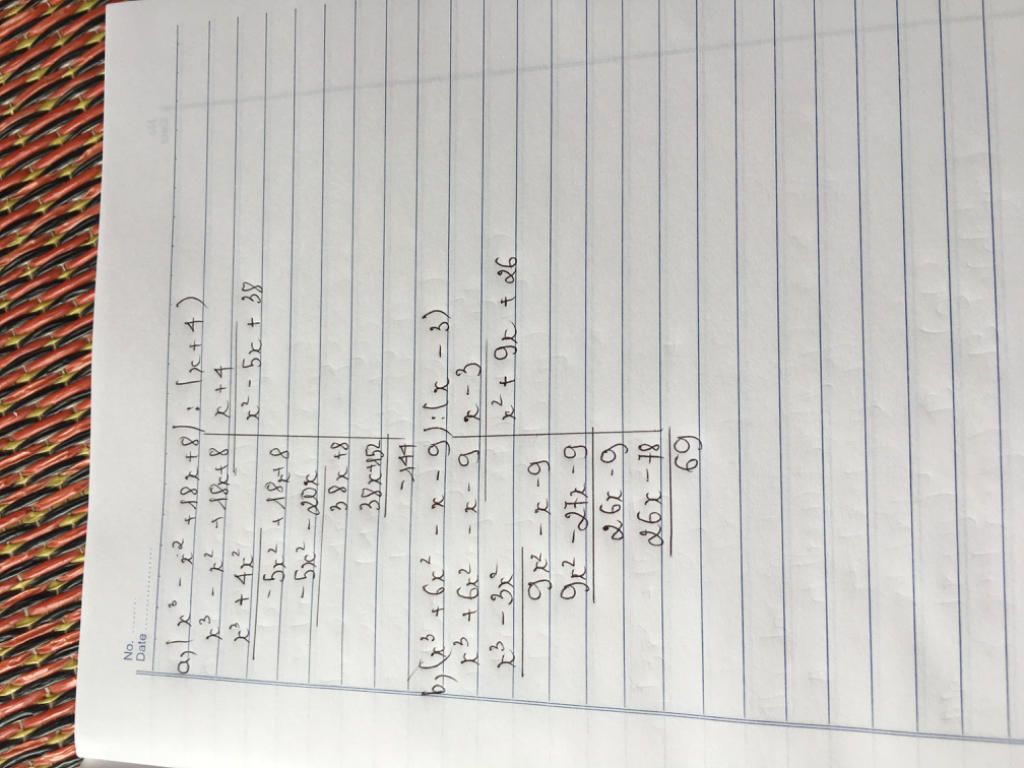 No.
Date
a, (x³ - x² + 18x + 8) : (x + 4)
x³ - x² + 18x + 8 x + 4
x³ + 4x² x² - 5x + 38
- 5x² + 18x + 8
- 5x² - 20x
38x + 8
38x + 152
- 144
b, (x³ + 6x² - x - 9) : (x - 3)
x³ + 6x² - x - 9 x - 3
x³ - 3x² x² + 9x + 26
9x² - x - 9
9x² - 27x - 9
26x - 9
26x - 78
69